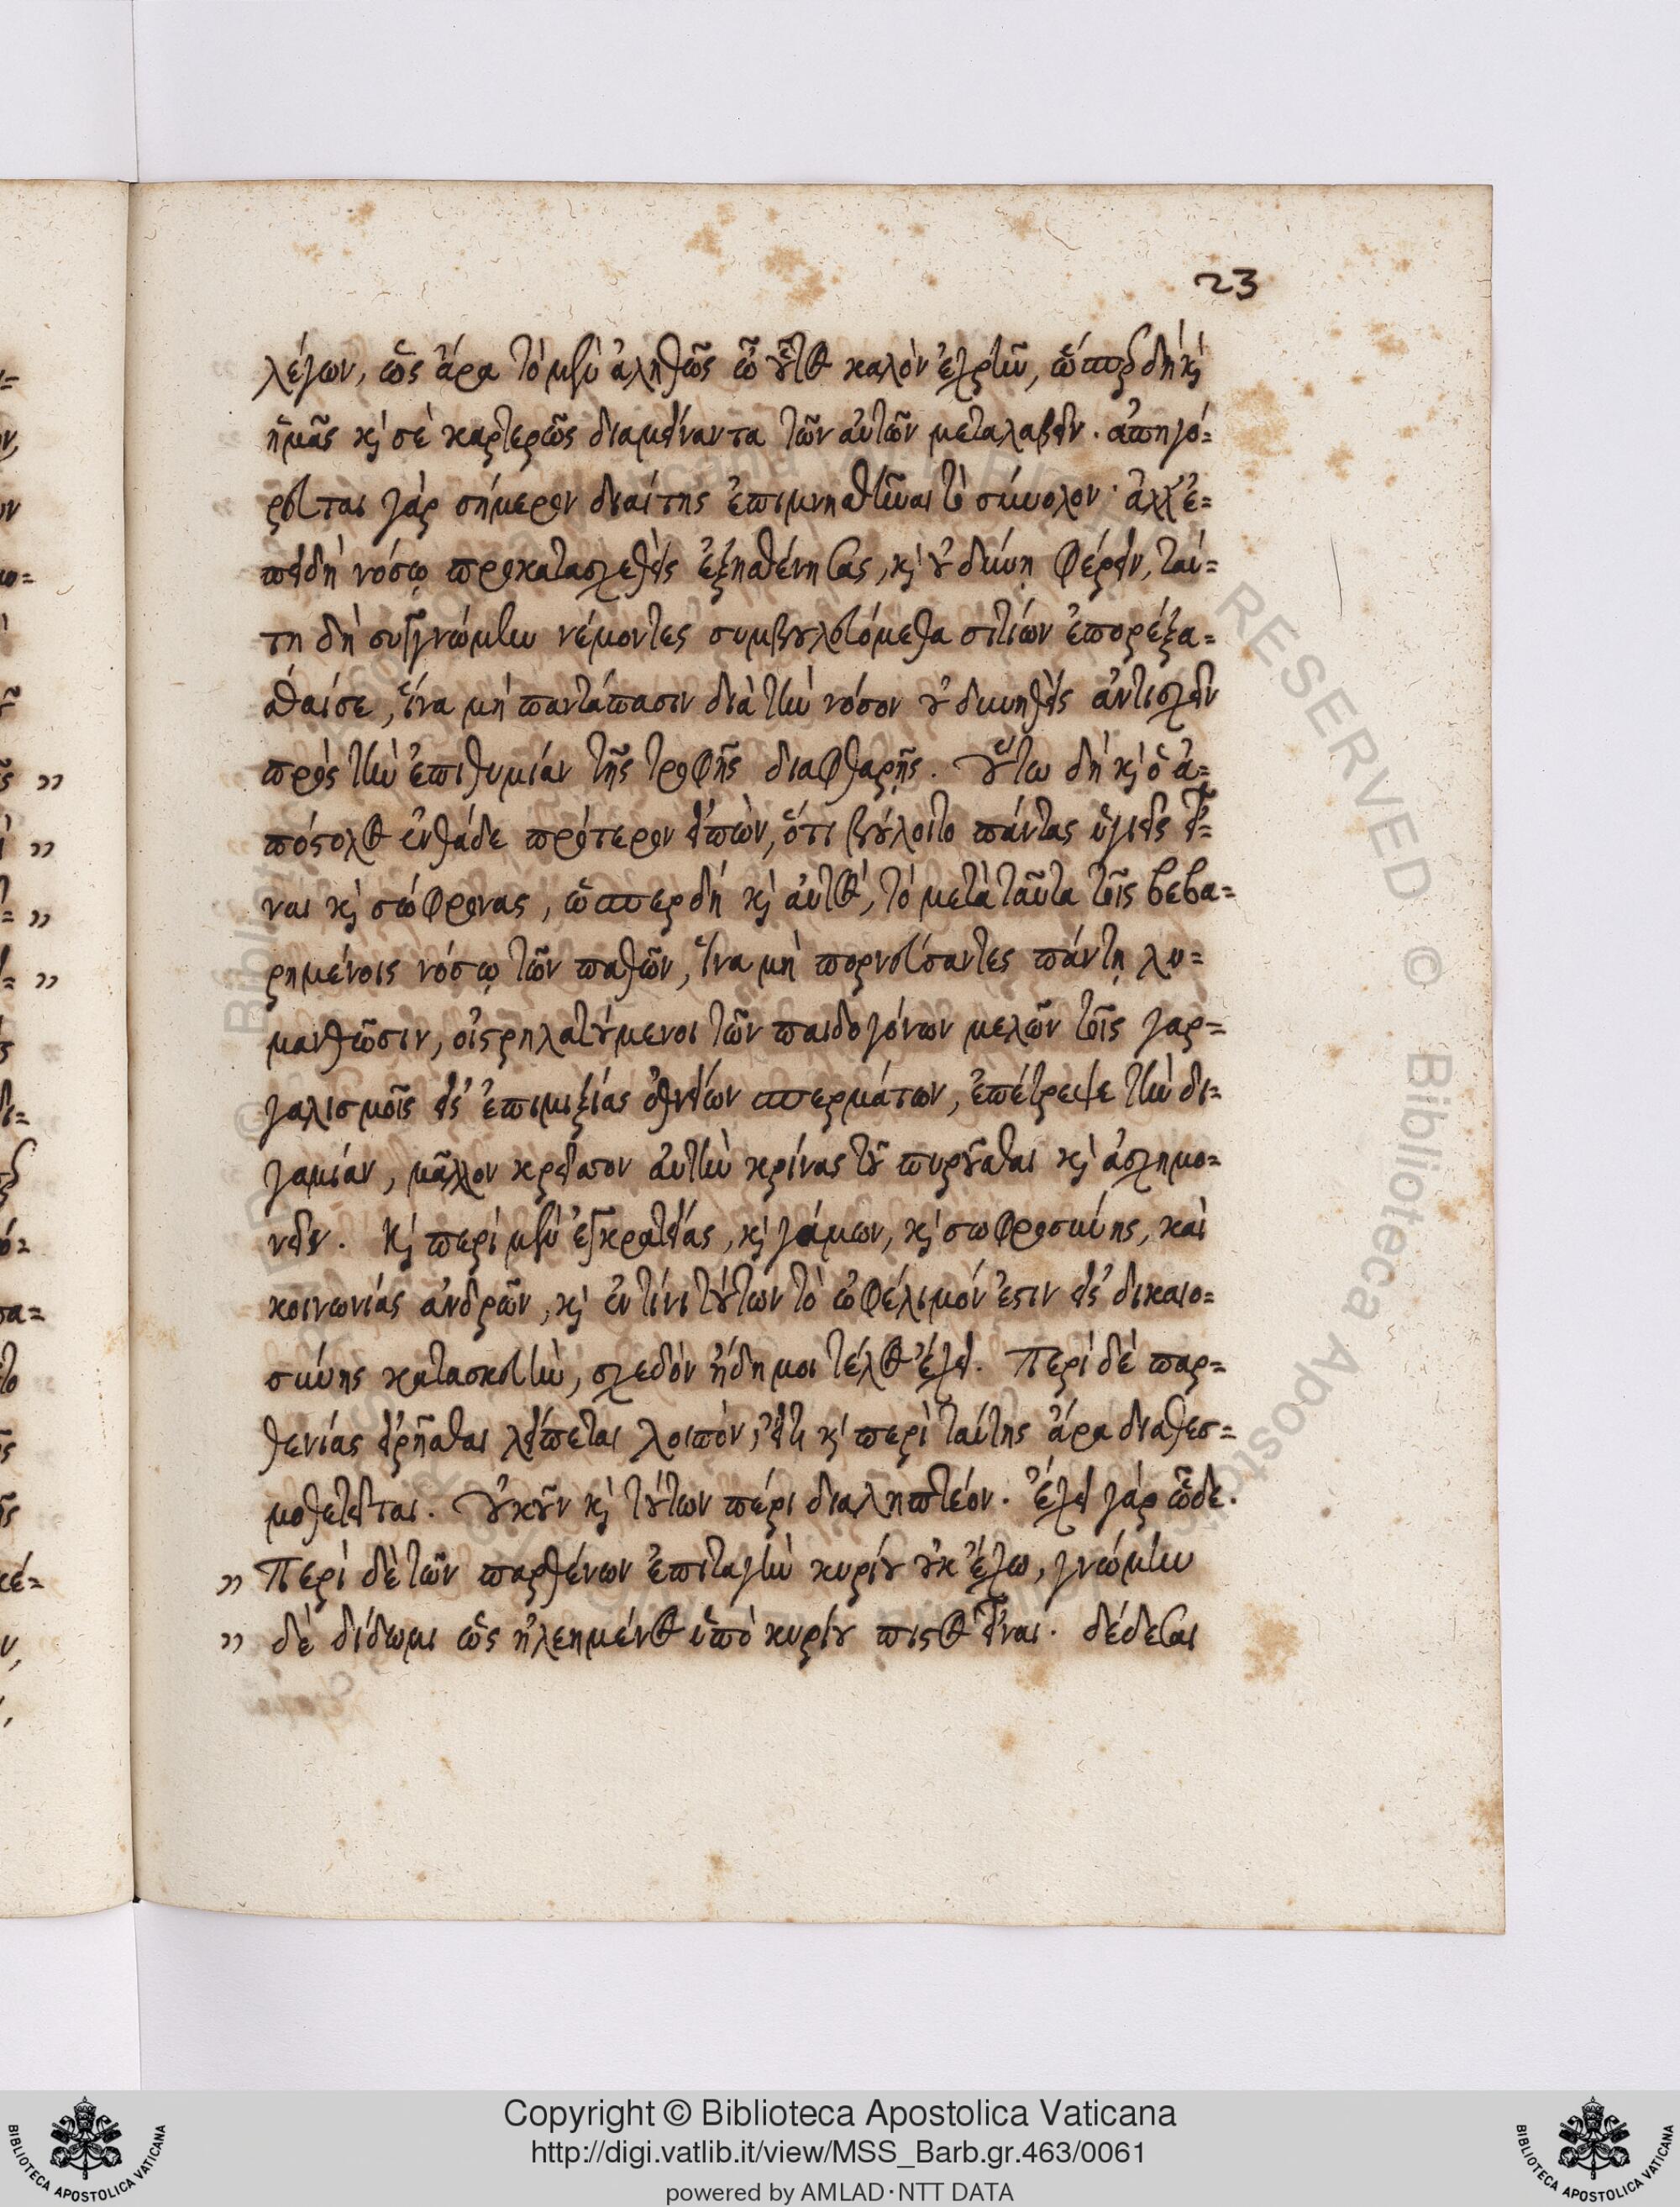 23
λέγων, ὡς ἄρα τὸ μὲν ἀληθῶς ὦ οὗτος καλὸν ἐχρῆν, ὥσπερ δὴ καὶ
ἡμᾶς καὶ σὲ καρτερῶς διαμείναντα τῶν αὐτῶν μεταλαβεῖν. ἀπηγό=
ρευται γὰρ σήμερον διαίτης ἐπιμνησθῆναι τὸ σύνολον· ἀλλ' ἐ=
πειδὴ νόσῳ προκατασχεθεὶς ἐξησθένησας, καὶ οὐ δύνῃ φέρειν, ταύ=
τη δὴ συγγνώμην νέμοντες συμβουλευόμεθα σιτίων ἐπορέξα=
σθαί σε, ἵνα μὴ παντάπασιν διὰ τὴν νόσον οὐ δυνηθεὶς ἀντισχεῖν
πρὸς τὴν ἐπιθυμίαν τῆς τροφῆς διαφθαρῇς. οὕτω δὴ καὶ ὁ ἀ=
πόστολος ἐνθάδε πρότερον εἰπὼν, ὅτι βούλοιτο πάντας ὑγιεῖς εἶ=
ναι καὶ σώφρονας, ὥσπερ δὴ καὶ αὐτός, τὸ μετὰ ταῦτα τοῖς βεβα=
ρημένοις νόσῳ τῶν παθῶν, ἵνα μὴ πορνεύσαντες πάντῃ λυ=
μανθῶσιν, οἰστρηλατούμενοι τῶν παιδογόνων μελῶν τοῖς γαρ=
γαλισμοῖς εἰς ἐπιμιξίας ὀθνείων σπερμάτων, ἐπέτρεψε τὴν δι=
γαμίαν, μᾶλλον κρεῖσσον αὐτὴν κρίνας τοῦ πυροῦσθαι καὶ ἀσχημο=
νεῖν. Καὶ περὶ μὲν ἐγκρατείας, καὶ γάμων, καὶ σωφροσύνης, καὶ
κοινωνίας ἀνδρῶν, καὶ ἐν τίνι τούτων τὸ ὠφέλιμόν ἐστιν εἰς δικαιο=
σύνης κατασκευὴν, σχεδὸν ἤδη μοι τέλος ἔχει. Περὶ δὲ παρ=
θενίας εἰρῆσθαι λείπεται λοιπόν, εἴτι καὶ περὶ ταύτης ἄρα διαθεσ=
μοθετεῖται. οὐκοῦν καὶ τούτων πέρι διαληπτέον. ἔχει γὰρ ὧδε.
,, Περὶ δὲ τῶν παρθένων ἐπιταγὴν κυρίου οὐκ ἔχω, γνώμην
,, δὲ δίδωμι ὡς ἠλεημένος ὑπὸ κυρίου πιστὸς εἶναι. δέδεσαι
Copyright © Biblioteca Apostolica Vaticana
http://digi.vatlib.it/view/MSS_Barb.gr.463/0061
powered by AMLAD·NTT DATA